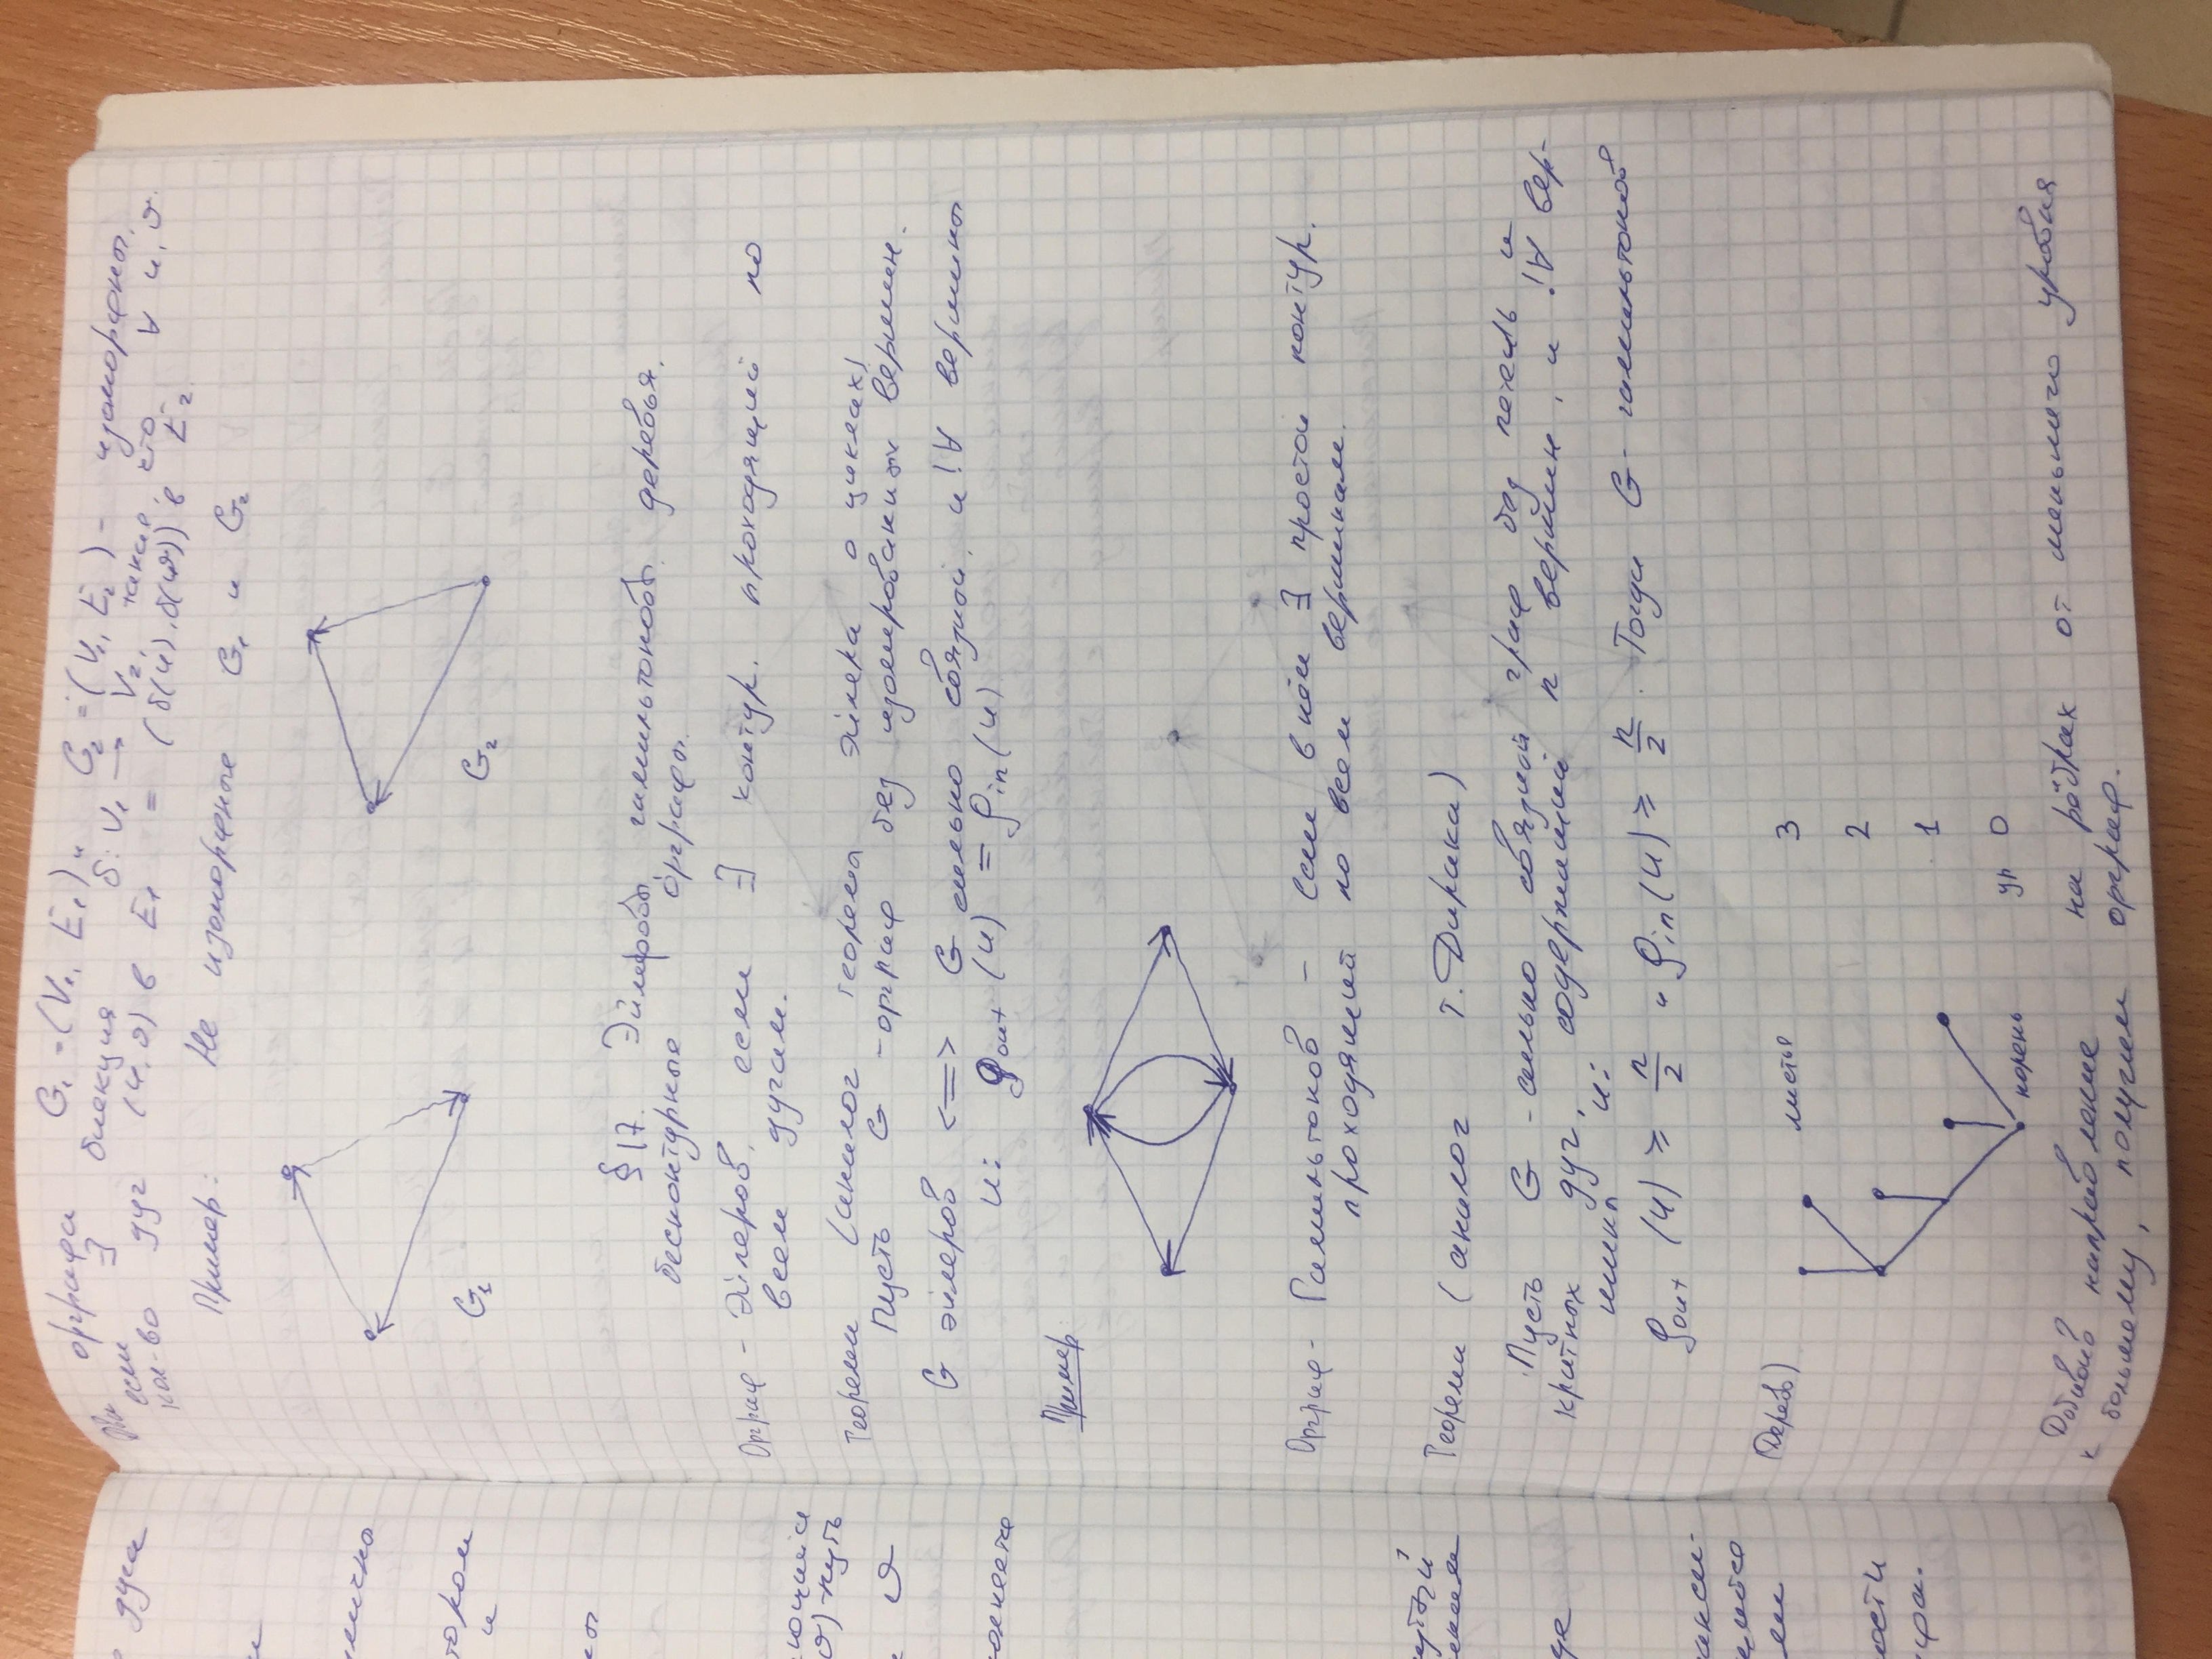 Два орграфа G₁ = (V₁, E₁) и G₂ = (V₁, E₂) - изоморфны,
если ∃ биекция δ: V₁ → V₂, такая, что ∀ u, v.
кол-во дуг (u, v) в E₁ = (δ(u), δ(v)) в E₂.
Пример: Не изоморфные G₁ и G₂
G₁
G₂
§17. Эйлеровы, гамильтоновы, деревья,
бесконтурные орграфы.
Орграф - Эйлеров, если ∃ контур, проходящий по
всем дугам.
Теорема (аналог теорема Эйлера о циклах)
Пусть G - орграф без изолированных вершин.
G эйлеров <=> G сильно связной, и !∀ вершины
u: ρout (u) = ρin (u)
Пример:
Орграф - Гамильтонов - если в нём ∃ простой контур,
проходящий по всем вершинам.
Теорема (аналог т. Дирака)
Пусть G - сильно связной граф без петель и
кратных дуг, содержащий n вершин, и !∀ вер-
шины u:
ρout (u) ≥ n/2 и ρin (u) ≥ n/2. Тогда G - гамильтонов
(Дерево)
листья 3
2
1
корень ур 0
Добавив направление на рёбрах от меньшего уровня
к большему, получим орграф.
дуга
тором
и
(v)-путь
v
ости